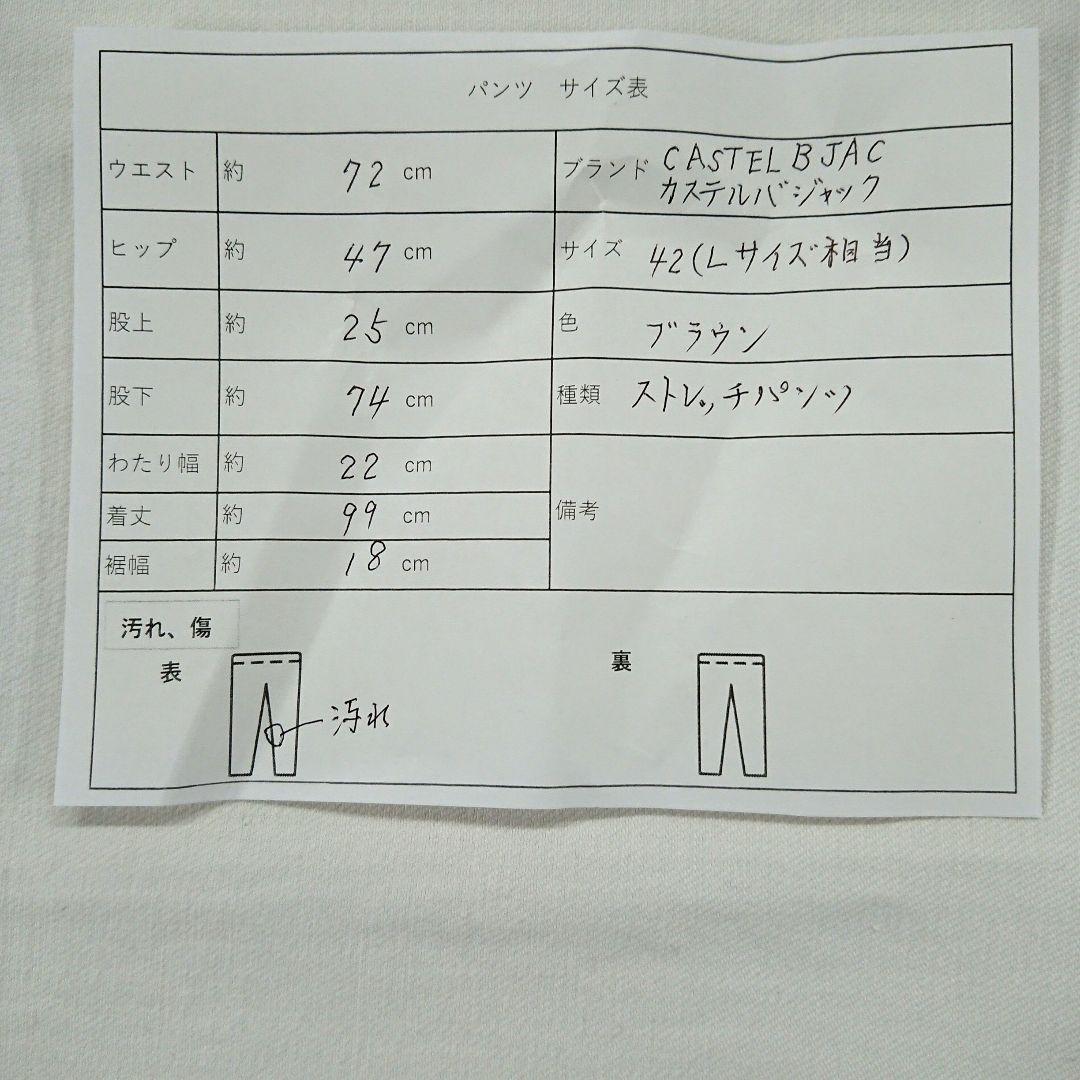 パンツ サイズ表
ウエスト 約 72 cm
ブランド CASTELBJAC
カステルバジャック
ヒップ 約 47 cm
サイズ 42(Lサイズ相当)
股上 約 25 cm
色 ブラウン
股下 約 74 cm
種類 ストレッチパンツ
わたり幅 約 22 cm
着丈 約 99 cm
備考
裾幅 約 18 cm
汚れ、傷
表
汚れ
裏